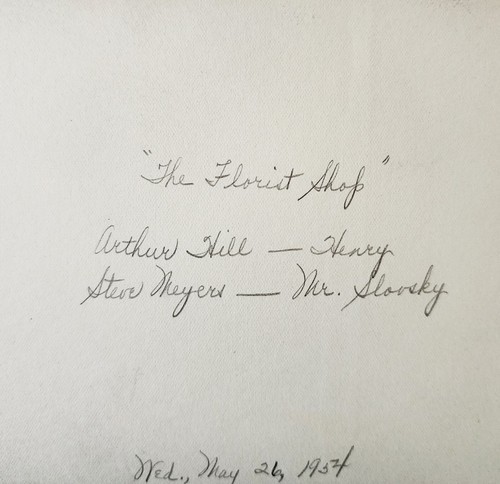 "The Florist Shop"
Arthur Hill — Henry
Steve Meyers — Mr. Slovsky
Wed., May 26, 1954